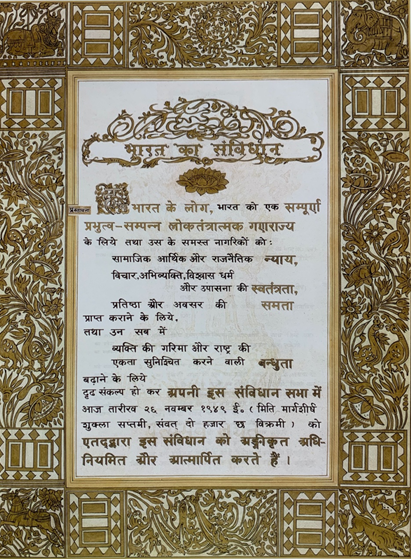 भारत का संविधान
प्रस्तावना
हम भारत के लोग, भारत को एक सम्पूर्ण
प्रभुत्व-सम्पन्न लोकतंत्रात्मक गणराज्य
के लिये तथा उस के समस्त नागरिकों को:
सामाजिक आर्थिक और राजनैतिक न्याय,
विचार,अभिव्यक्ति,विश्वास धर्म
और उपासना की स्वतंत्रता,
प्रतिष्ठा और अवसर की समता
प्राप्त कराने के लिये,
तथा उन सब में
व्यक्ति की गरिमा और राष्ट्र की
एकता सुनिश्चित करने वाली बन्धुता
बढ़ाने के लिये
दृढ संकल्प हो कर अपनी इस संविधान सभा में
आज तारीख २६ नवम्बर १९४९ ई. ( मिति मार्गशीर्ष
शुक्ला सप्तमी, संवत् दो हजार छ विक्रमी ) को
एतद्द्वारा इस संविधान को अङ्गीकृत अधि-
नियमित और आत्मार्पित करते हैं ।